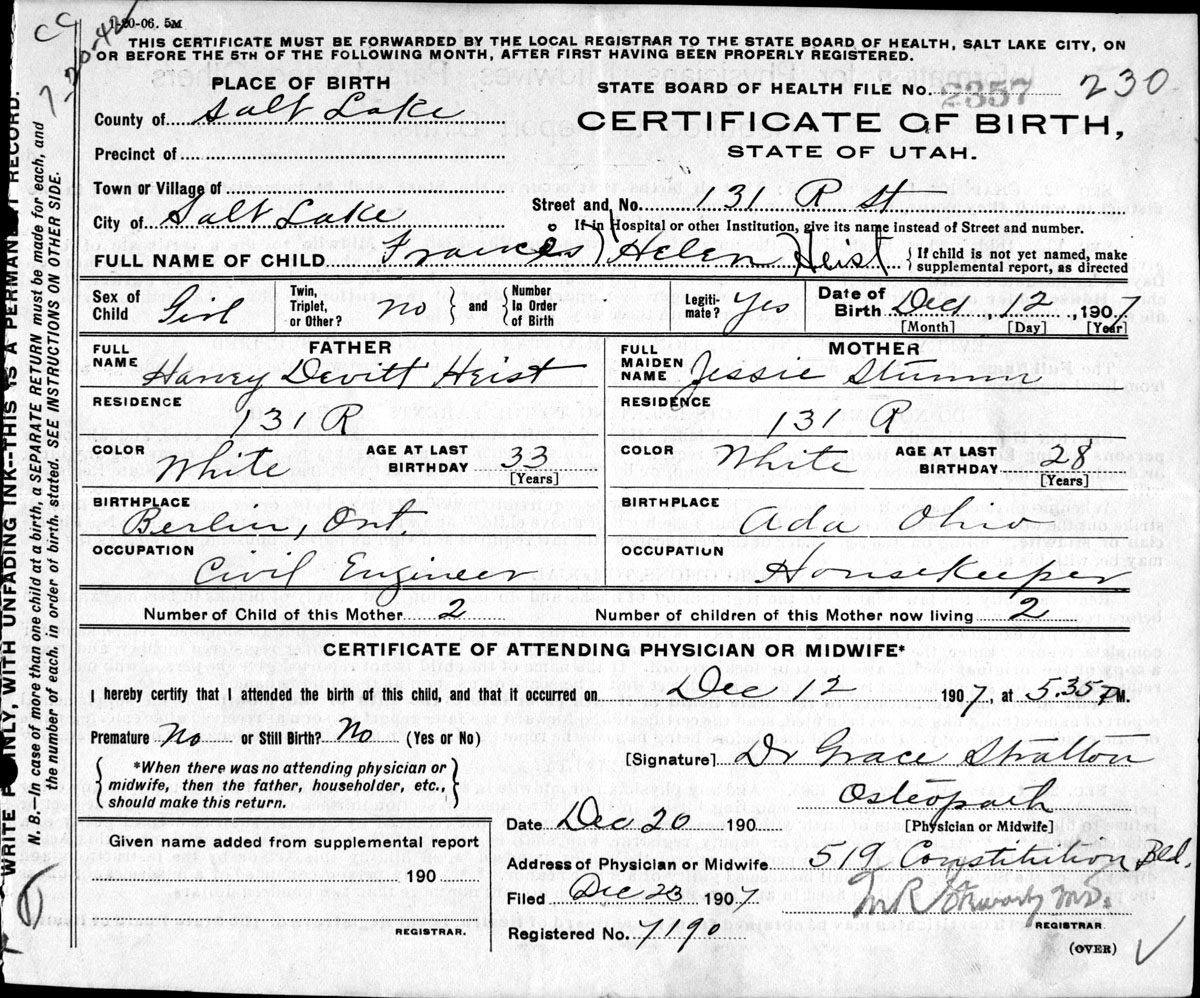 1-20-06. 5M
CC
7-20-42
THIS CERTIFICATE MUST BE FORWARDED BY THE LOCAL REGISTRAR TO THE STATE BOARD OF HEALTH, SALT LAKE CITY, ON
OR BEFORE THE 5TH OF THE FOLLOWING MONTH, AFTER FIRST HAVING BEEN PROPERLY REGISTERED.
PLACE OF BIRTH
STATE BOARD OF HEALTH FILE No. 2357 230
County of Salt Lake
CERTIFICATE OF BIRTH,
STATE OF UTAH.
Precinct of
Town or Village of
Street and No. 131 R St
City of Salt Lake
If in Hospital or other Institution, give its name instead of Street and number.
FULL NAME OF CHILD Francis Helen Heist { If child is not yet named, make supplemental report, as directed
Sex of Child Girl Twin, Triplet, or Other? No } and { Number In Order of Birth Legitimate? Yes Date of Birth Dec, 12, 1907
[Month] [Day] [Year]
FATHER MOTHER
FULL NAME Harvey Devitt Heist FULL MAIDEN NAME Jessie Stumm
RESIDENCE 131 R RESIDENCE 131 R
COLOR White AGE AT LAST BIRTHDAY 33 [Years] COLOR White AGE AT LAST BIRTHDAY 28 [Years]
BIRTHPLACE Berlin, Ont. BIRTHPLACE Ada Ohio
OCCUPATION Civil Engineer OCCUPATION Housekeeper
Number of Child of this Mother 2 Number of children of this Mother now living 2
CERTIFICATE OF ATTENDING PHYSICIAN OR MIDWIFE*
I hereby certify that I attended the birth of this child, and that it occurred on Dec 12 1907, at 5.35 P M.
Premature No or Still Birth? No (Yes or No)
[Signature] Dr Grace Stratton
*When there was no attending physician or
midwife, then the father, householder, etc.,
should make this return.
Osteopath
[Physician or Midwife]
Date Dec 20 190
Given name added from supplemental report
190
REGISTRAR.
Address of Physician or Midwife 519 Constitution Bld.
Filed Dec 23 1907
M.D.
REGISTRAR.
Registered No. 1190
(OVER)
WRITE PLAINLY, WITH UNFADING INK--THIS IS A PERMANENT RECORD.
N. B.--In case of more than one child at a birth, a SEPARATE RETURN must be made for each, and
the number of each, in order of birth, stated. SEE INSTRUCTIONS ON OTHER SIDE.